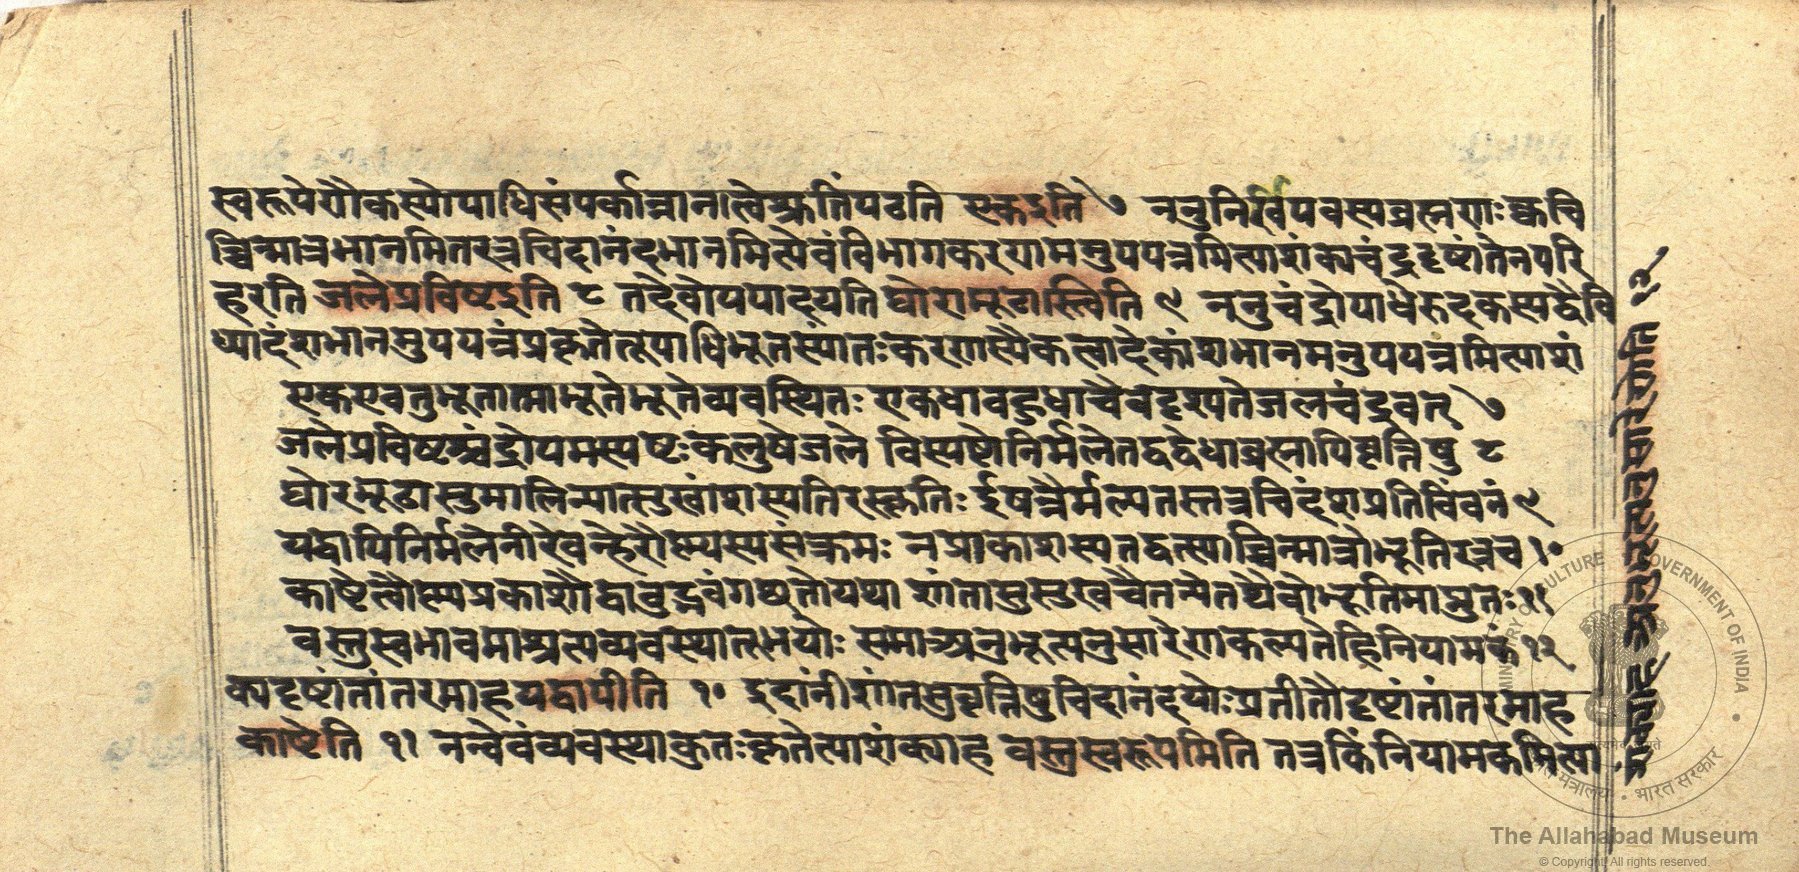 स्वरूपेणैकस्योपाधिसंपर्कान्नानात्वेश्रुतिंपठति एकइति ७ ननुनिर्विषवस्यब्रह्मणःक्वचि
च्चिन्मात्रभानमितरत्रचिदानंदभानमित्येवंविभागकरणमनुपपन्नमित्याशंक्यचंद्रदृष्टांतेनपरि
हरति जलेप्रविष्टइति ८ तदेवोपपादयति घोरामूढास्त्विति ९ ननुचंद्रोपाधेरुदकस्यद्वैवि
ध्यादंशभानमुपपन्नंप्रकृतेतूपाधिभूतस्यांतःकरणस्यैकत्वादेकांशभानमनुपपन्नमित्याशं
एकएवतुभूतात्माभूतेभूतेव्यवस्थितः एकधाबहुधाचैवदृश्यतेजलचंद्रवत् ७
जलेप्रविष्टश्चंद्रोयमस्पष्टःकलुषेजले विस्पष्टोनिर्मलेतद्वद्द्वेधाब्रह्मापिवृत्तिषु ८
घोरमूढासुमालिन्यात्सुखांशस्यतिरस्कृतिः ईषन्नैर्मल्यतस्तत्रचिदंशप्रतिबिंबनं ९
यद्वापिनिर्मलेनीरेवन्हेरौष्ण्यस्यसंक्रमः नप्राकाशस्यतद्वत्स्याच्चिन्मात्रोद्भूतिरत्रच १०
काष्टेत्वौष्ण्यप्रकाशौद्वावुद्भवंगछतोयथा शांतासुसुखचैतन्येतथैवोद्भूतिमाप्नुतः ११
वस्तुस्वभावमाश्रित्यव्यवस्थातूभयोः समाअनुभूत्यनुसारेणकल्पतेहिनियामकं १२
क्यदृष्टांतांतरमाहयद्वापीति १० इदानींशांतासुवृत्तिषुचिदानंदयोःप्रतीतौदृष्टांतांतरमाह
काष्टेति ११ नन्वेवंव्यवस्थाकुतःकृतेत्याशंक्याह वस्तुस्वरूपमिति तत्रकिंनियामकमित्या
१२
The Allahabad Museum
© Copyright. All rights reserved.
MINISTRY OF CULTURE GOVERNMENT OF INDIA
भारत सरकार